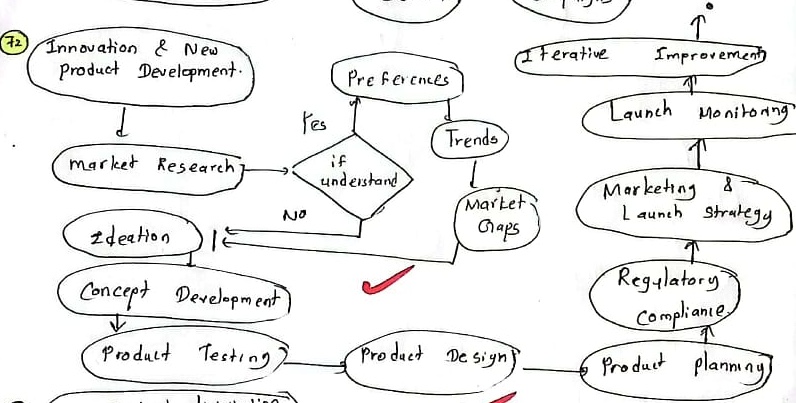 72
Innovation & New
Product Development.
Market Research
if
understand
Yes
Preferences
Trends
Market
Gaps
No
Ideation
Concept Development
Product Testing
Product Design
Product Planning
Regulatory
Compliance.
Marketing &
Launch Strategy
Launch Monitoring
Iterative Improvement